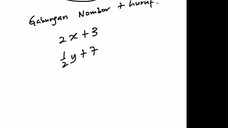 Gabungan Nombor + huruf.
2x + 3
1/2 y + 7